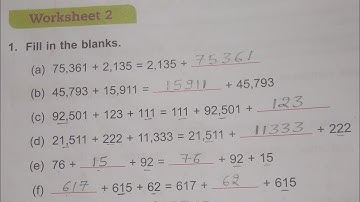 Worksheet 2
1. Fill in the blanks.
(a) 75,361 + 2,135 = 2,135 + 75361
(b) 45,793 + 15,911 = 15911 + 45,793
(c) 92,501 + 123 + 111 = 111 + 92,501 + 123
(d) 21,511 + 222 + 11,333 = 21,511 + 11333 + 222
(e) 76 + 15 + 92 = 76 + 92 + 15
(f) 617 + 615 + 62 = 617 + 62 + 615